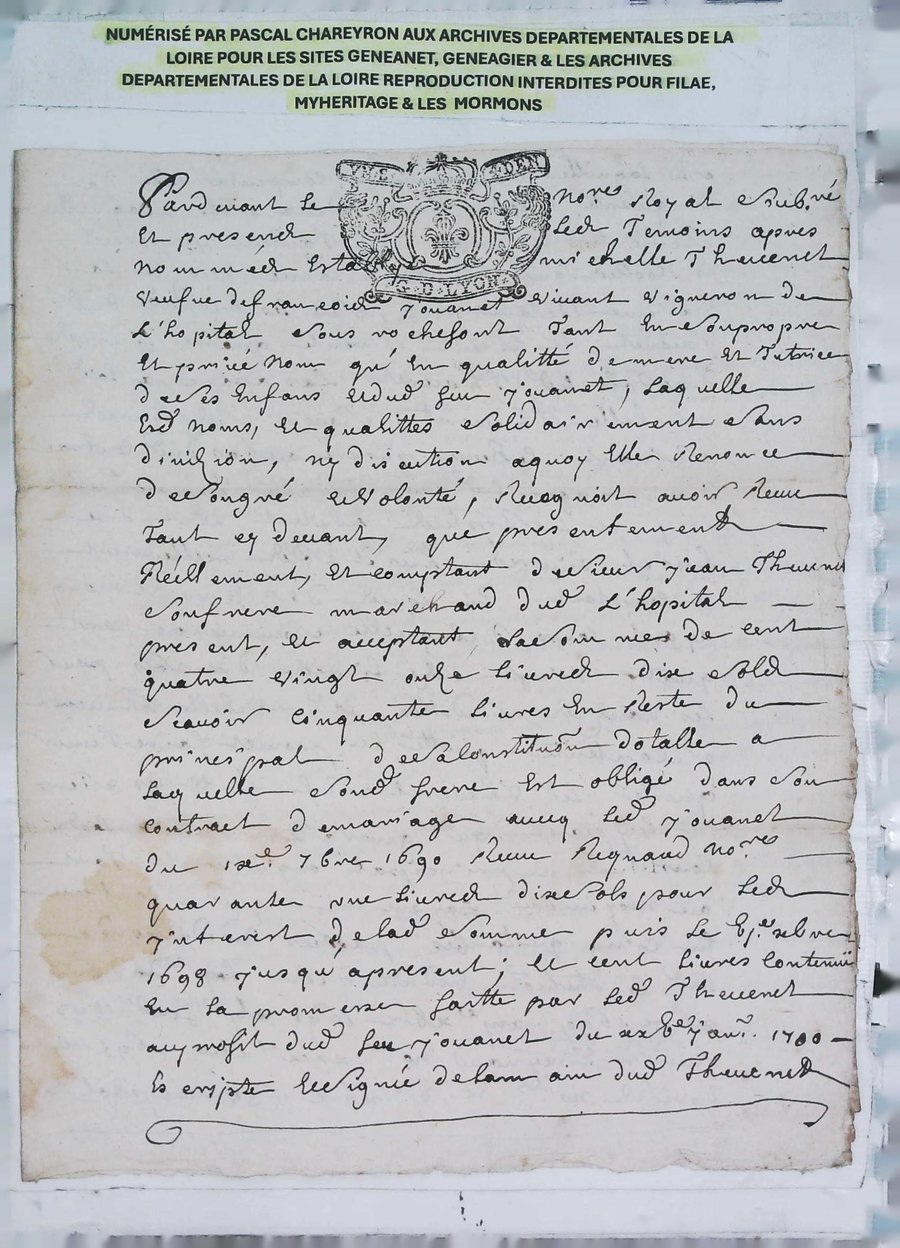 NUMÉRISÉ PAR PASCAL CHAREYRON AUX ARCHIVES DEPARTEMENTALES DE LA
LOIRE POUR LES SITES GENEANET, GENEAGIER & LES ARCHIVES
DEPARTEMENTALES DE LA LOIRE REPRODUCTION INTERDITES POUR FILAE,
MYHERITAGE & LES MORMONS
DEN
G. D. LYON
Pardevant le no.re Royal soub.né
Et presend led Temoins apres
nommed Establie michelle Theuenet
veufue de francoid Jouanet viuant vigneron de
L'hopital sous rochefort tant En son propre
Et priué nom qu'En qualitté de mere Et Tutrice
de ses Enfans et dud feu Jouanet, laquelle
Esd noms, Et qualittes solidairement sans
diuizion, ny discution aquoy Elle Renonce
de son gré et volonté, Recognoit auoir Receu
Tant cy deuant, que presentement
Réellement, Et comptant de sieur Jean Theuenet
son frere marchand dud L'hopital
present, Et acceptant la somme de cent
quatre vingt onze liured dix sold
scauoir Cinquante liures En Reste du
prinsipal de sa Constitu.on dotalle a
laquelle sond frere Est obligé dans son
contract de mariage aueq led Jouanet
du 7bre 1690 Receu Regnaud no.re
quarante vne liured dix sols pour led
Jnterest de lad somme puis le xbre
1698 Jusqu'apresent; Et cent liures Contenuü
En la promesse faitte par led Theuenet
au profit dud feu Jouanet du Jan.r 1700
Escripte Et signée de la main dud Theuenet